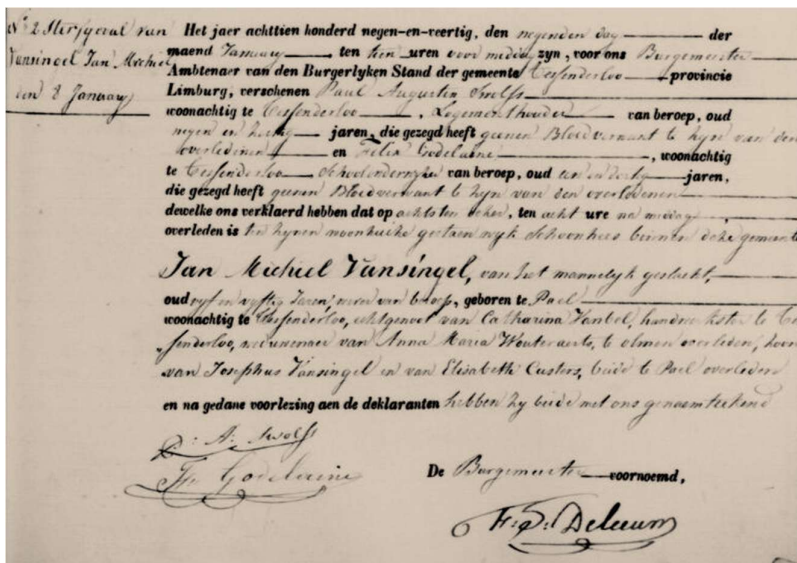 N° 2 Sterfgeval van
Vansingel Jan Michiel
den 8 January
Het jaer achttien honderd negen-en-veertig, den negenden dag der
maend January ten tien uren voor middag zyn, voor ons Burgemeester
Ambtenaer van den Burgerlyken Stand der gemeente Tessenderloo provincie
Limburg, verschenen Paul Augustin Swolfs
woonachtig te Tessenderloo, Logementhouder van beroep, oud
negen en jaren, die gezegd heeft geenen Bloedverwant te zyn van den
overledenen en Felix Godelaine, woonachtig
te Tessenderloo van beroep, oud een en dertig jaren,
die gezegd heeft geenen Bloedverwant te zyn van den overledenen
dewelke ons verklaerd hebben dat op achtsten dezer, ten acht ure na middag,
overleden is ten zynen woonhuize gestaen wyk Schoonhees binnen deze gemeente
Jan Michiel Vansingel, van het mannelyk geslacht,
oud vyf en vyftig Jaren, van beroep, geboren te Pael
woonachtig te Tessenderloo, echtgenoot van Catharina Vanbel, handwerkster te Te
ssenderloo, weduwenaer van Anna Maria Wouteraerts, te olmen overleden, zoon
van Josephus Vansingel en van Elisabeth Custers, beide te Pael overleden
en na gedane voorlezing aen de deklaranten hebben zy beide met ons genaemteekend
P. A. Swolfs
Fx Godelaine
De Burgemeester voornoemd,